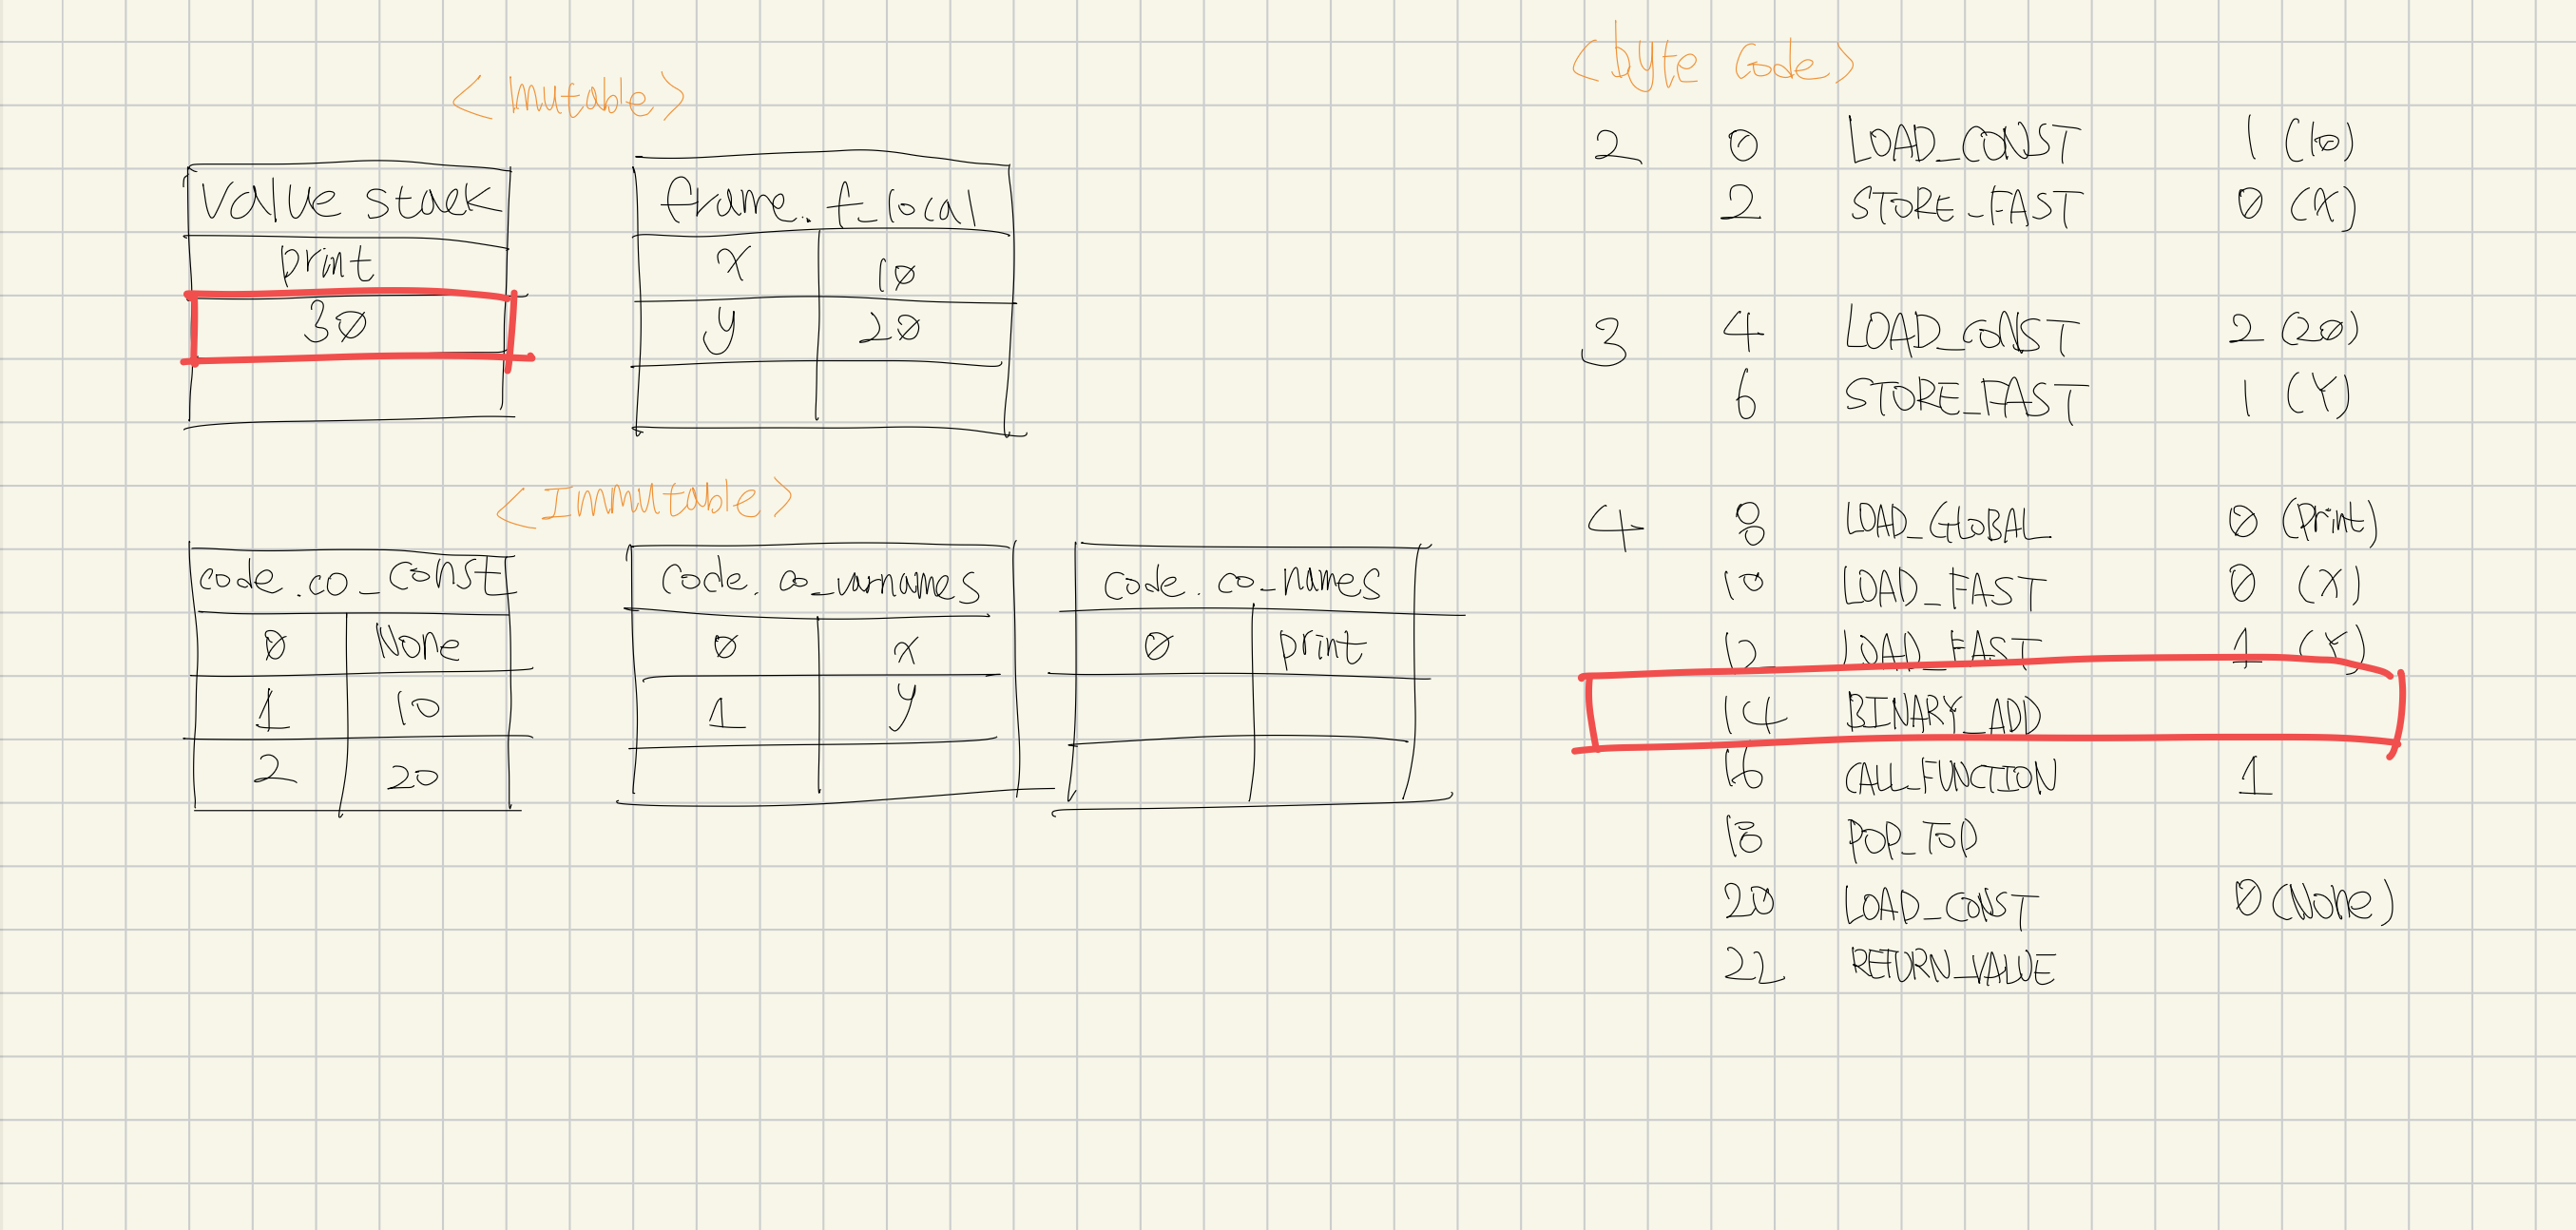 <Mutable>
value stack
print
30
frame. f_local
x 10
y 20
<Immutable>
code.co_const
0 None
1 10
2 20
code. co_varnames
0 x
1 y
code. co_names
0 print
<byte code>
2 0 LOAD_CONST 1 (10)
2 STORE_FAST 0 (X)
3 4 LOAD_CONST 2 (20)
6 STORE_FAST 1 (Y)
4 8 LOAD_GLOBAL 0 (print)
10 LOAD_FAST 0 (X)
12 LOAD_FAST 1 (Y)
14 BINARY_ADD
16 CALL_FUNCTION 1
18 POP_TOP
20 LOAD_CONST 0 (None)
22 RETURN_VALUE